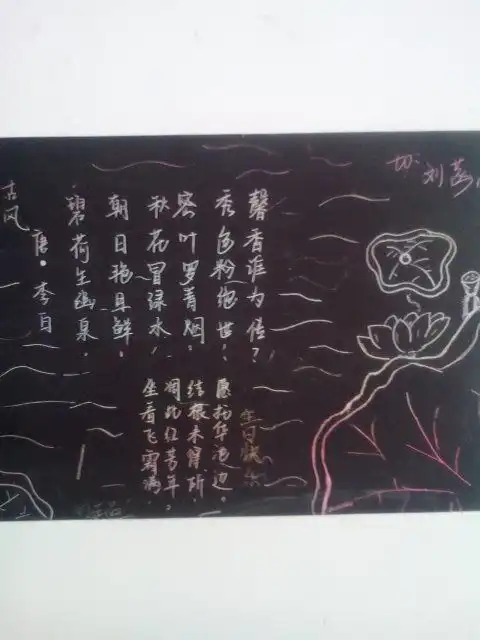 古风
唐·李白
碧荷生幽泉，
朝日艳且鲜。
秋花冒绿水，
密叶罗青烟。
秀色粉绝世，
馨香谁为传？
坐看飞霜满，
凋此红芳年。
结根未得所，
愿托华池边。
生日快乐
刘